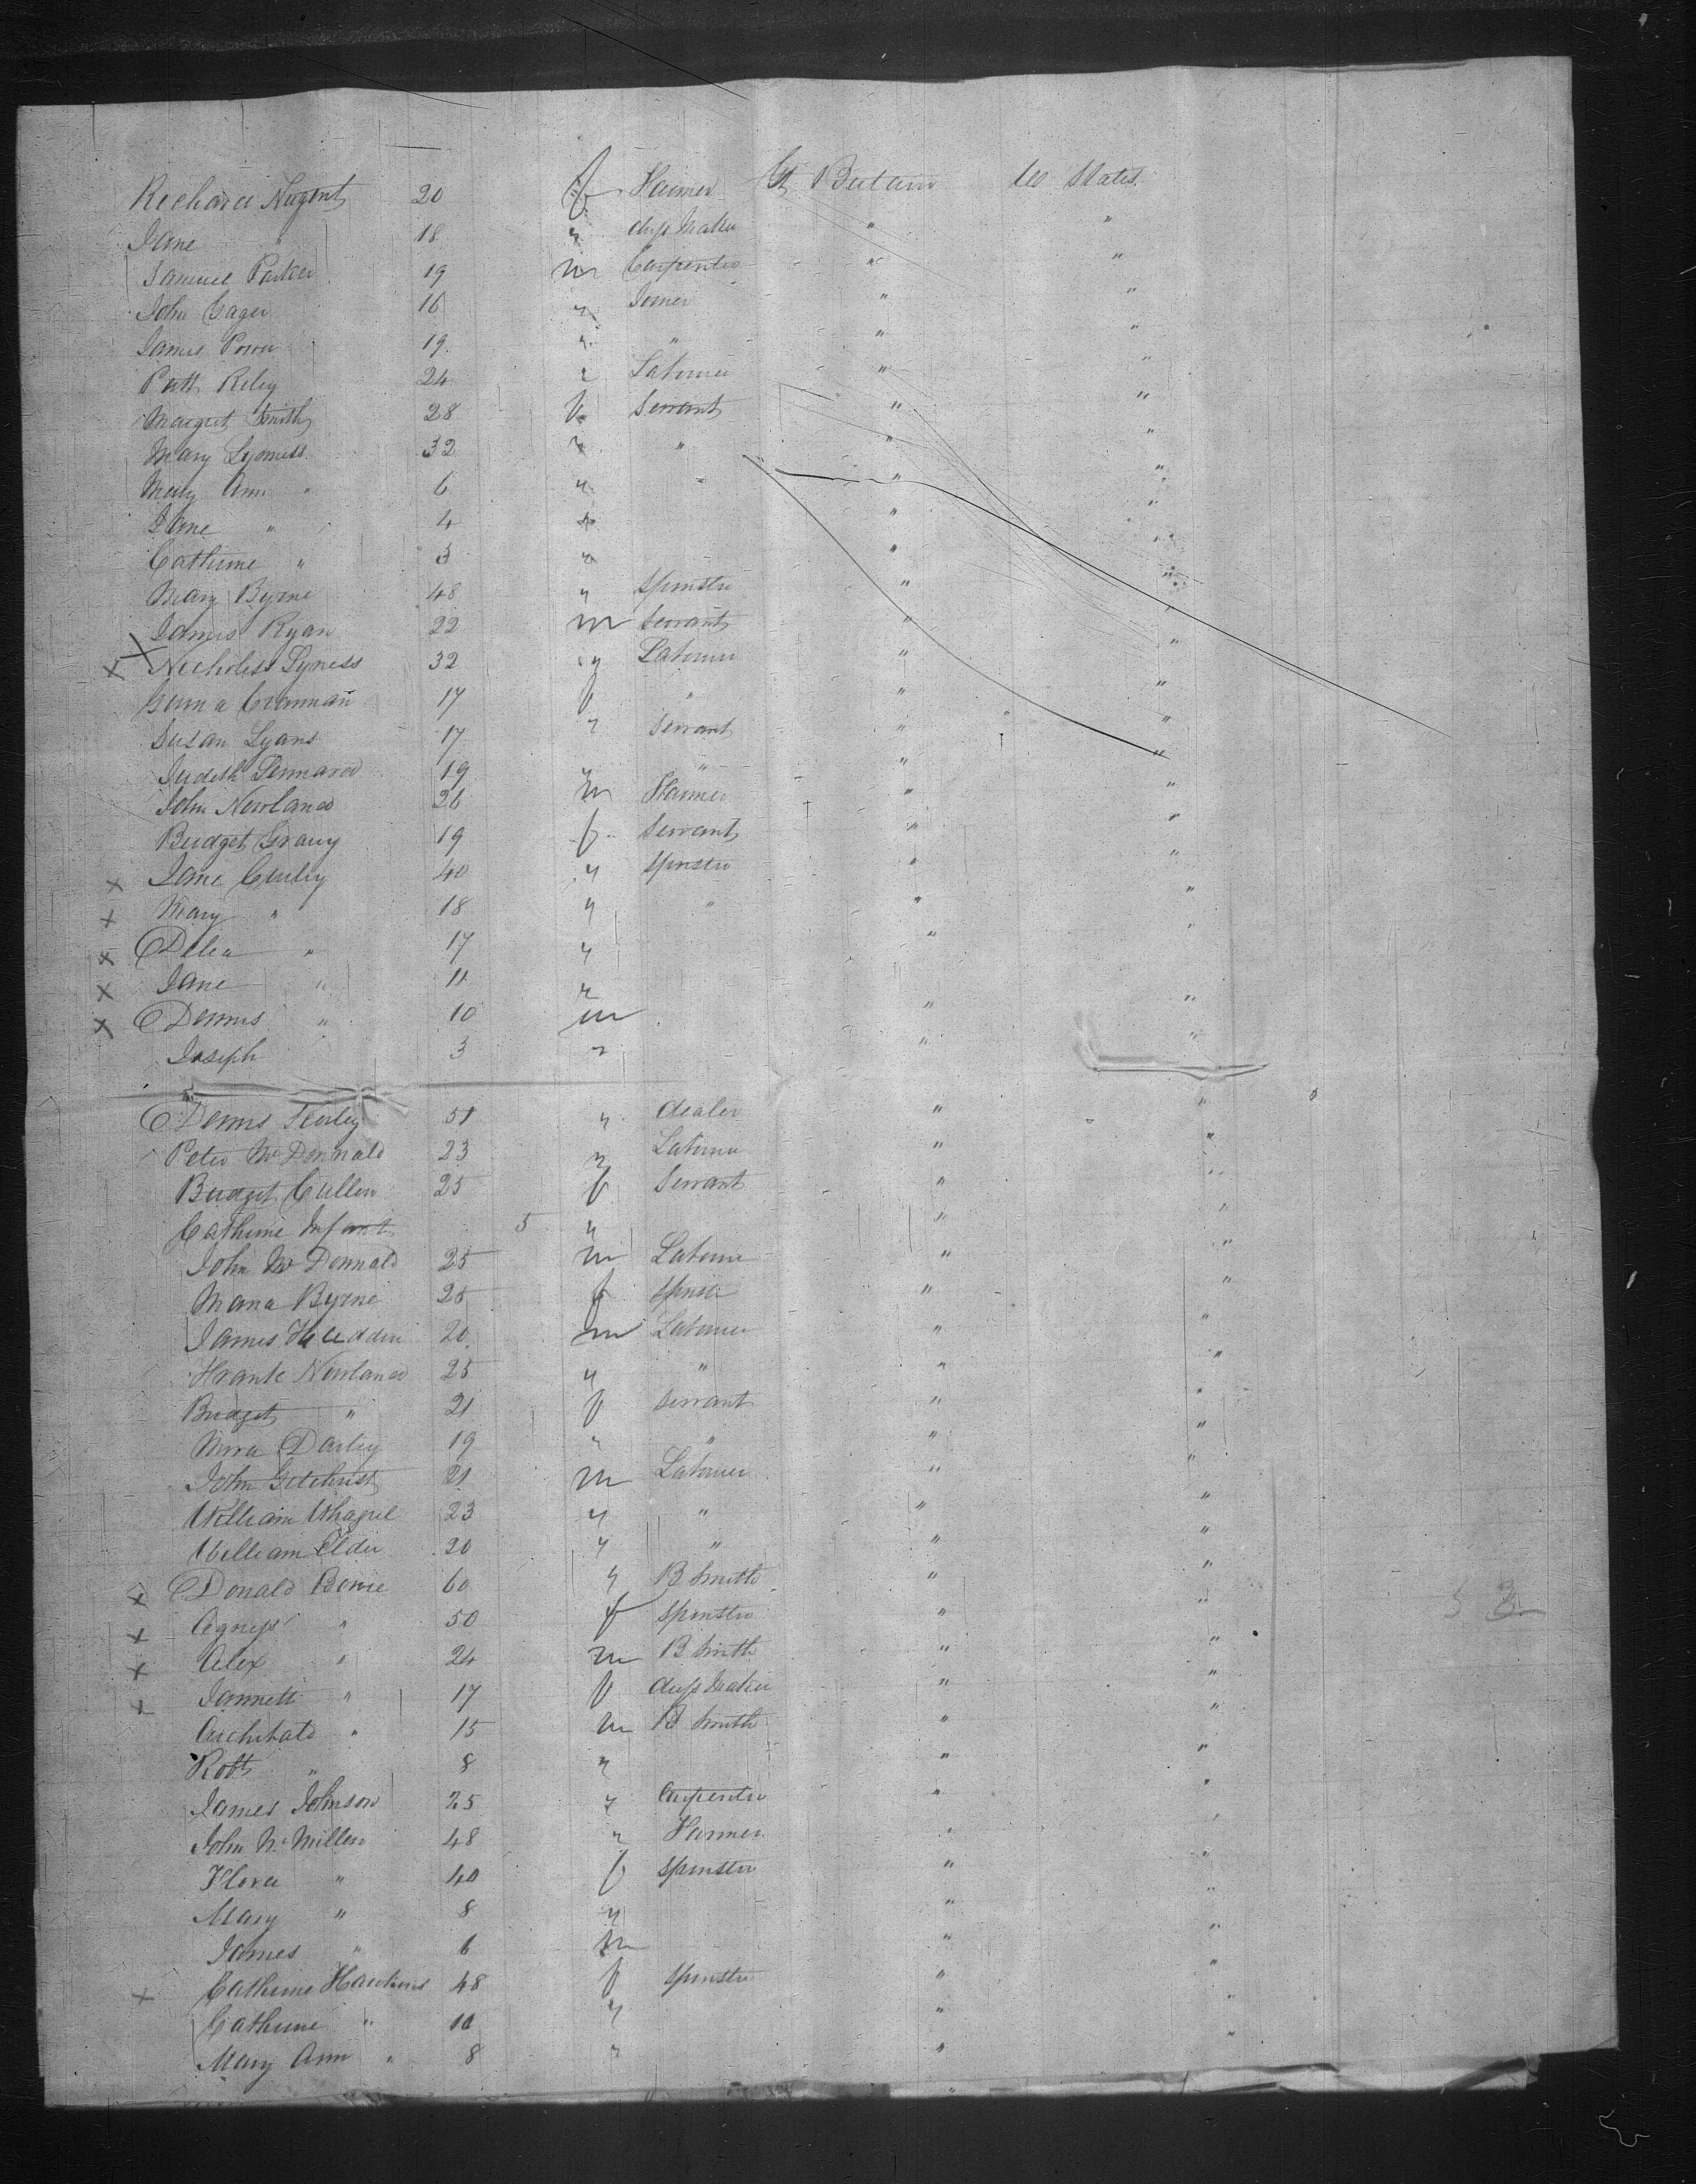 Richard Nugent 20 f Farmer Gt Britain U States
Jane " 18 " dressmaker " "
Samuel Parker 19 m Carpenter " "
John Gager 16 " Joiner " "
James Power 19 " " " "
Patt Riley 24 " Labourer " "
Margret Smith 28 f Servant " "
Mary Lyoness 32 " " " "
Mary Ann " 6 " " " "
Jane " 4 " " "
Catherine " 3 " " "
Mary Byrne 48 " Spinster " "
James Ryan 22 m Servant " "
x x Nicholess Lyness 32 " Labourer " "
17 f " " "
Susan Lyans 17 " Servant " "
Judeth Lennard 19 " " " "
John Newland 26 m Farmer " "
Bridget Grany 19 f Servant " "
x Jane Curley 40 " Spinster " "
x Mary " 18 " " " "
x Delia " 17 " " "
x Jane " 11 "
x Dennis " 10 m " "
Joseph 3 " " "
Dennis Kerley 51 " dealer " "
Peter McDonnald 23 " Labourer " "
Bridget Cullen 25 f Servant " "
Catherine Infant 5 " " "
John McDonnald 25 m Labourer " "
Maria Byrne 25 f Spinster " "
James Hadden 20 m Labourer " "
Frank Newland 25 " " " "
Bridget " 21 f Servant " "
Darley 19 " " " "
John Gilchrist 21 m Labourer " "
William 23 " " " "
William Elder 20 " " " "
x Donald Bowie 60 " B Smith " "
x Agness " 50 f Spinster " "
x Alex " 24 m B Smith " "
x Jannett " 17 f dressmaker " "
Archibald " 15 m B Smith " "
Robt " 8 " " "
James Johnson 25 " Carpenter " "
John McMillen 48 " Farmer " "
Flora " 40 f Spinster " "
Mary " 8 " " "
James " 6 m " "
x Catherine Hawkins 48 f Spinster " "
Catherine " 10 " " "
Mary Ann " 8 " "